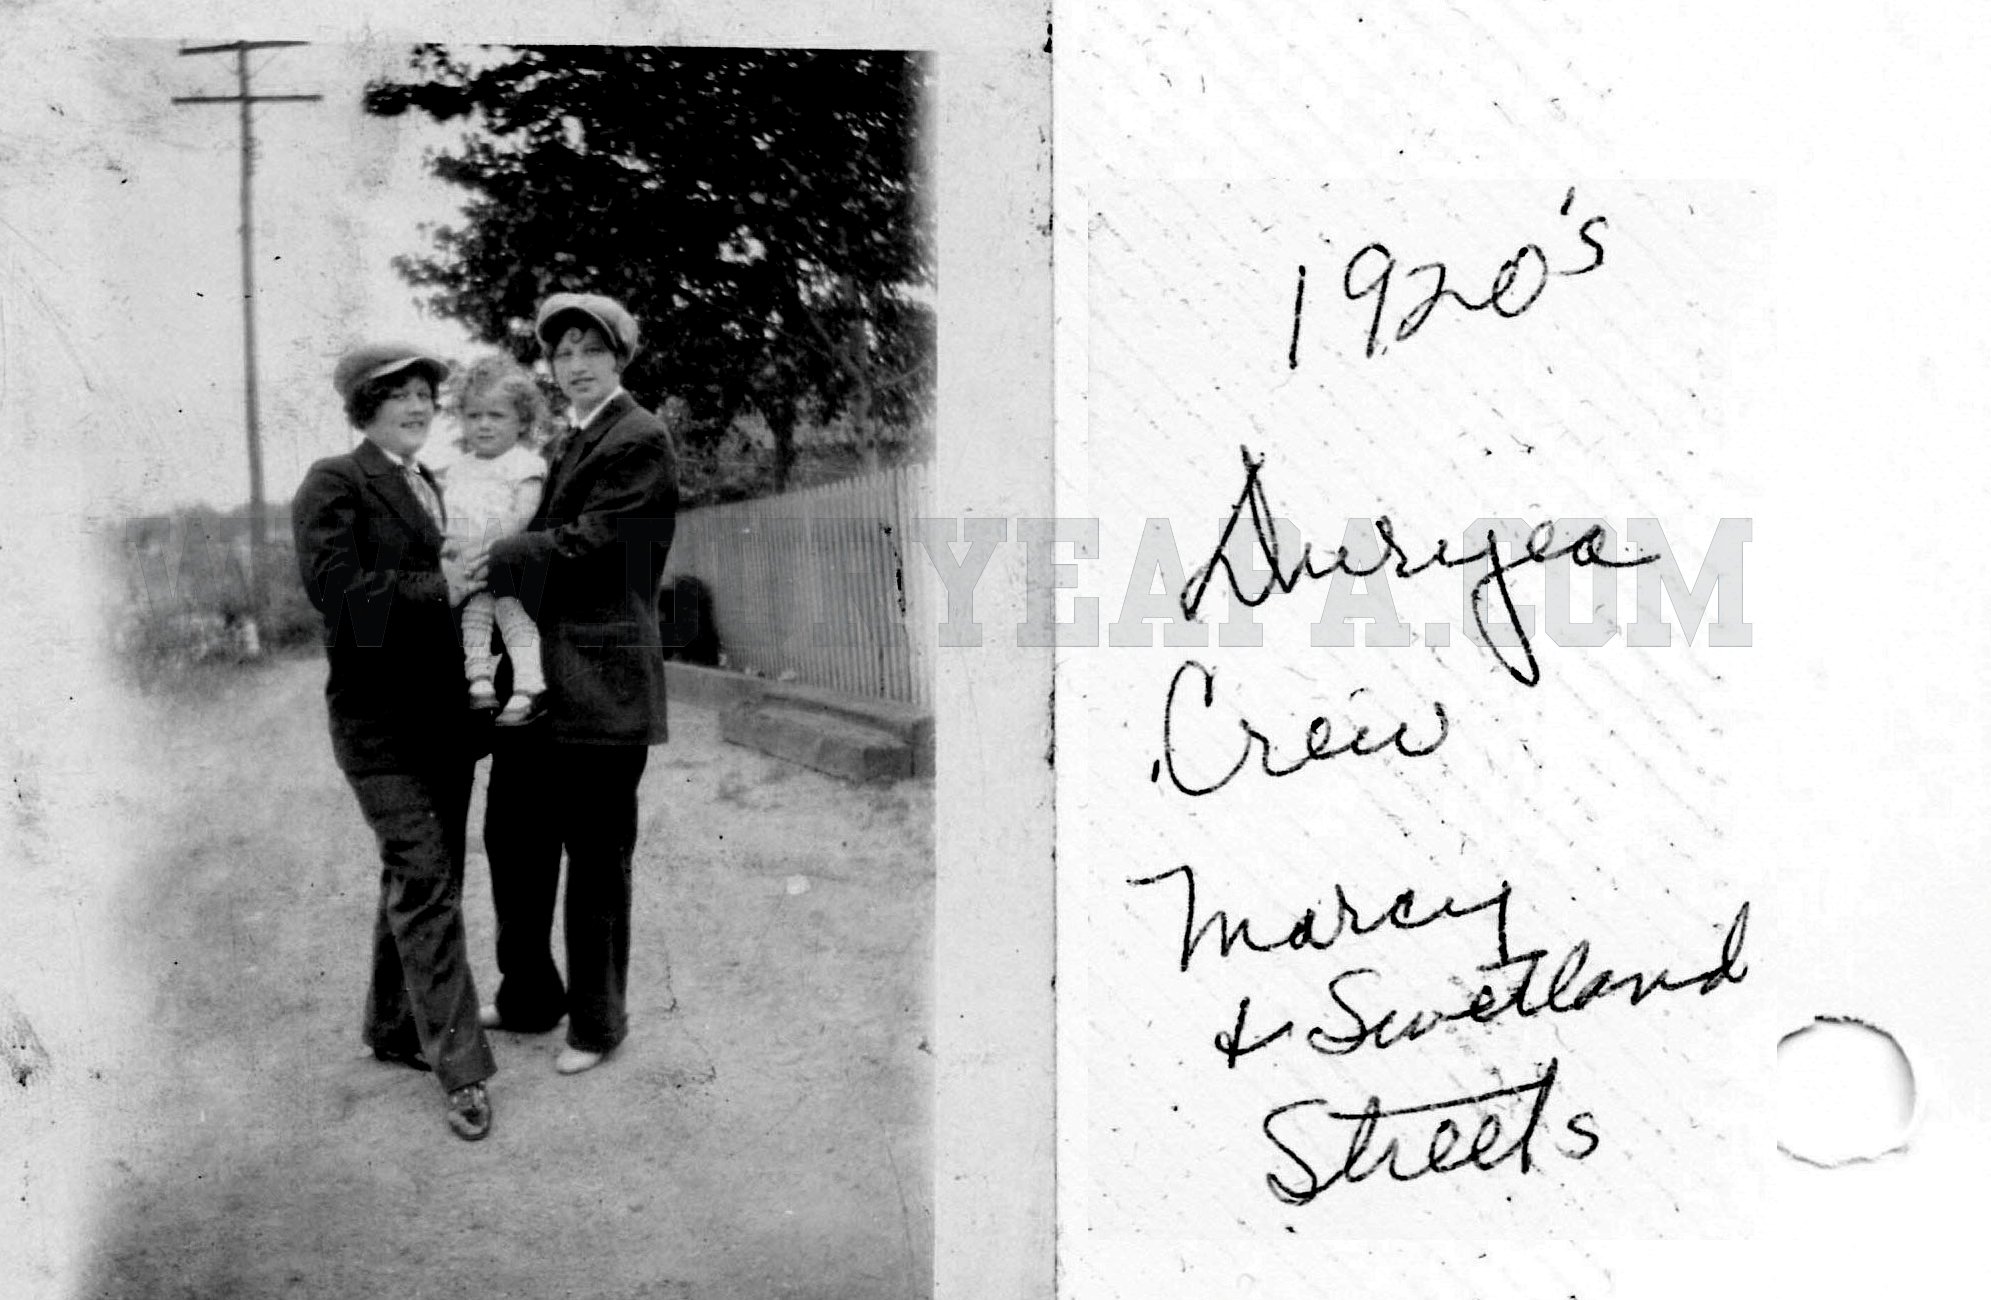 1920's
Duryea
Crew
Marcy
& Swetland
Streets
WWW.DURYEAPA.COM